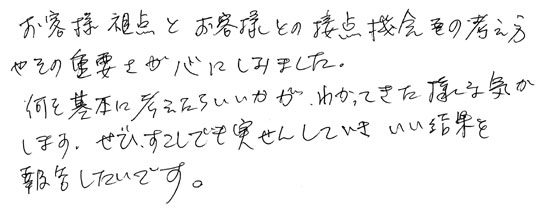 お客様視点とお客様との接点機会での考え方
やその重要さが心にしみました。
何を基本に考えたらいいかが、わかってきた様な気が
します。ぜひ、すこしでも実せんしていき いい結果を
報告したいです。